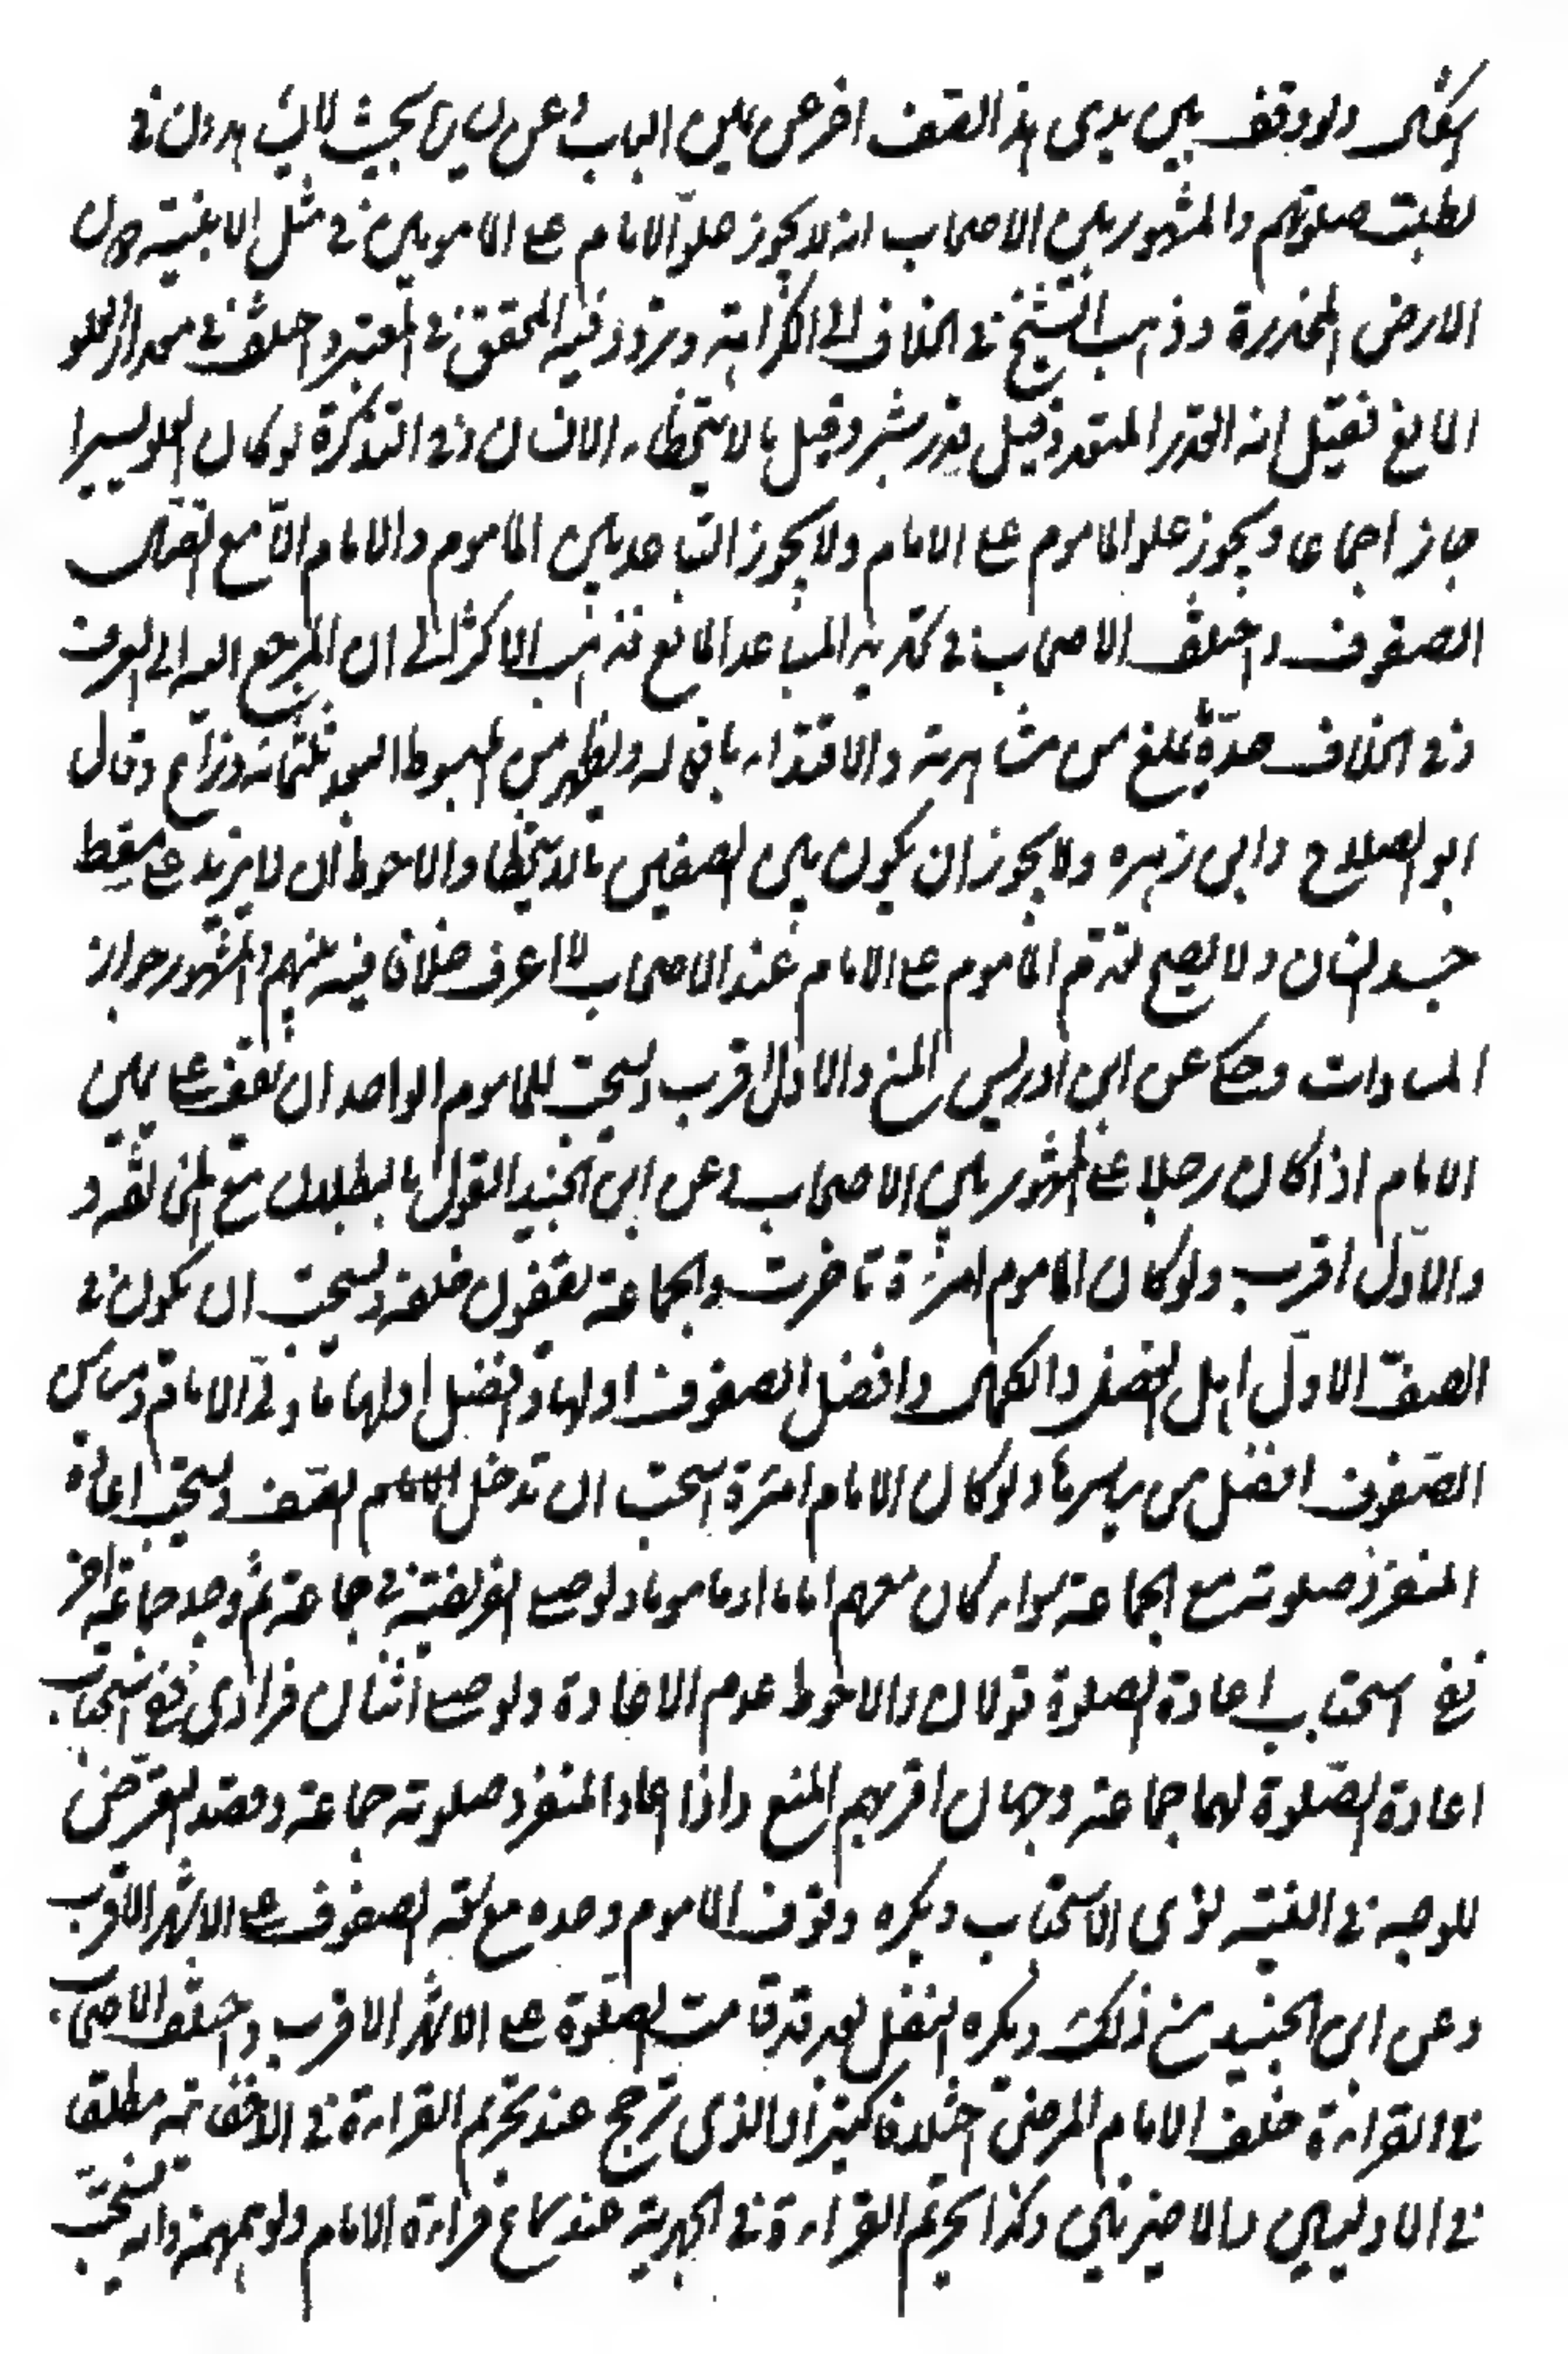 اشكال ولو وقف بين يدى هذا الصف اخر عن يمين الباب او عن يساره بحيث لا يشاهدون من في
لبطلت صلوتهم والمشهور بين الاصحاب انه لا يجوز علو الامام على المامومين في مثل الابنية دون
الارض المنحدرة وذهب الشيخ في الخلاف الى الكراهة وتردد فيه المحقق في المعتبر واختلف في مقدار العلو
المانع فقيل انه القدر المعتد وقيل قدر شبر وقيل ما لا يتخطاه الانسان وفي التذكرة لو كان العلو يسيرا
جاز اجماعا ويجوز علو الماموم على الامام ولا يجوز التباعد بين الماموم والامام الا مع اتصال
الصفوف واختلف الاصحاب في تحديد المتباعد المانع فذهب الاكثر الى ان المرجع اليه الى العرف
وفي الخلاف حده ما يمنع من مشاهدته والاقتداء بافعاله ويظهر من المبسوط البعد ثلثمائة ذراع وقال
ابو الصلاح وابن زهرة ولا يجوز ان يكون بين الصفين ما لا يتخطا والاحوط ان لا يزيد على مسقط
جسد انسان ولا يصح تقدم الماموم على الامام عند الاصحاب لا اعرف خلافا فيه بينهم والمشهور جواز
المساوات وحكى عن ابن ادريس المنع والاول اقرب ويستحب للماموم الواحد ان يقف على يمين
الامام اذا كان رجلا على المشهور بين الاصحاب وعن ابن الجنيد القول بالبطلان مع المخالفة و
والاول اقرب ولو كان الماموم امرئة تاخرت والجماعة يقفون خلفه ويستحب ان يكون في
الصف الاول اهل الفضل والكمال وافضل الصفوف اولها وافضل اولها ما دنى الامام وميامن
الصفوف افضل من مياسرها ولو كان الامام امرئة استحب ان تدخل الصف ويستحب اعادة
المنفرد صلوته مع الجماعة سواء كان معهم اماما او ماموما ولو صلى الفريضة في جماعة ثم وجد جماعة اخر
ففي استحباب اعادة الصلوة قولان والاحوط عدم الاعادة ولو صلى اثنان فرادى ففي استحباب
اعادة الصلوة لهما جماعة وجهان اقربهم المنع واذا اعاد المنفرد صلوته جماعة وقصد التعرض
للوجه في النية نوى الاستحباب ويكره وقوف الماموم وحده مع سعة الصفوف على الاشهر الاقرب
وعن ابن الجنيد منع ذلك ويكره التنفل بعد قد قامت الصلوة على الاشهر الاقرب واختلف الاصحاب
في القرائة خلف الامام المرضى اختلافا كثيرا والذى ترجح عند تحريم القراءة في الاخفاتية مطلقا
في الاوليين والاخيرتين وكذا يحرم القراءة في الجهرية عند سماع قراءة الامام ولو همهمة وانه يستحب